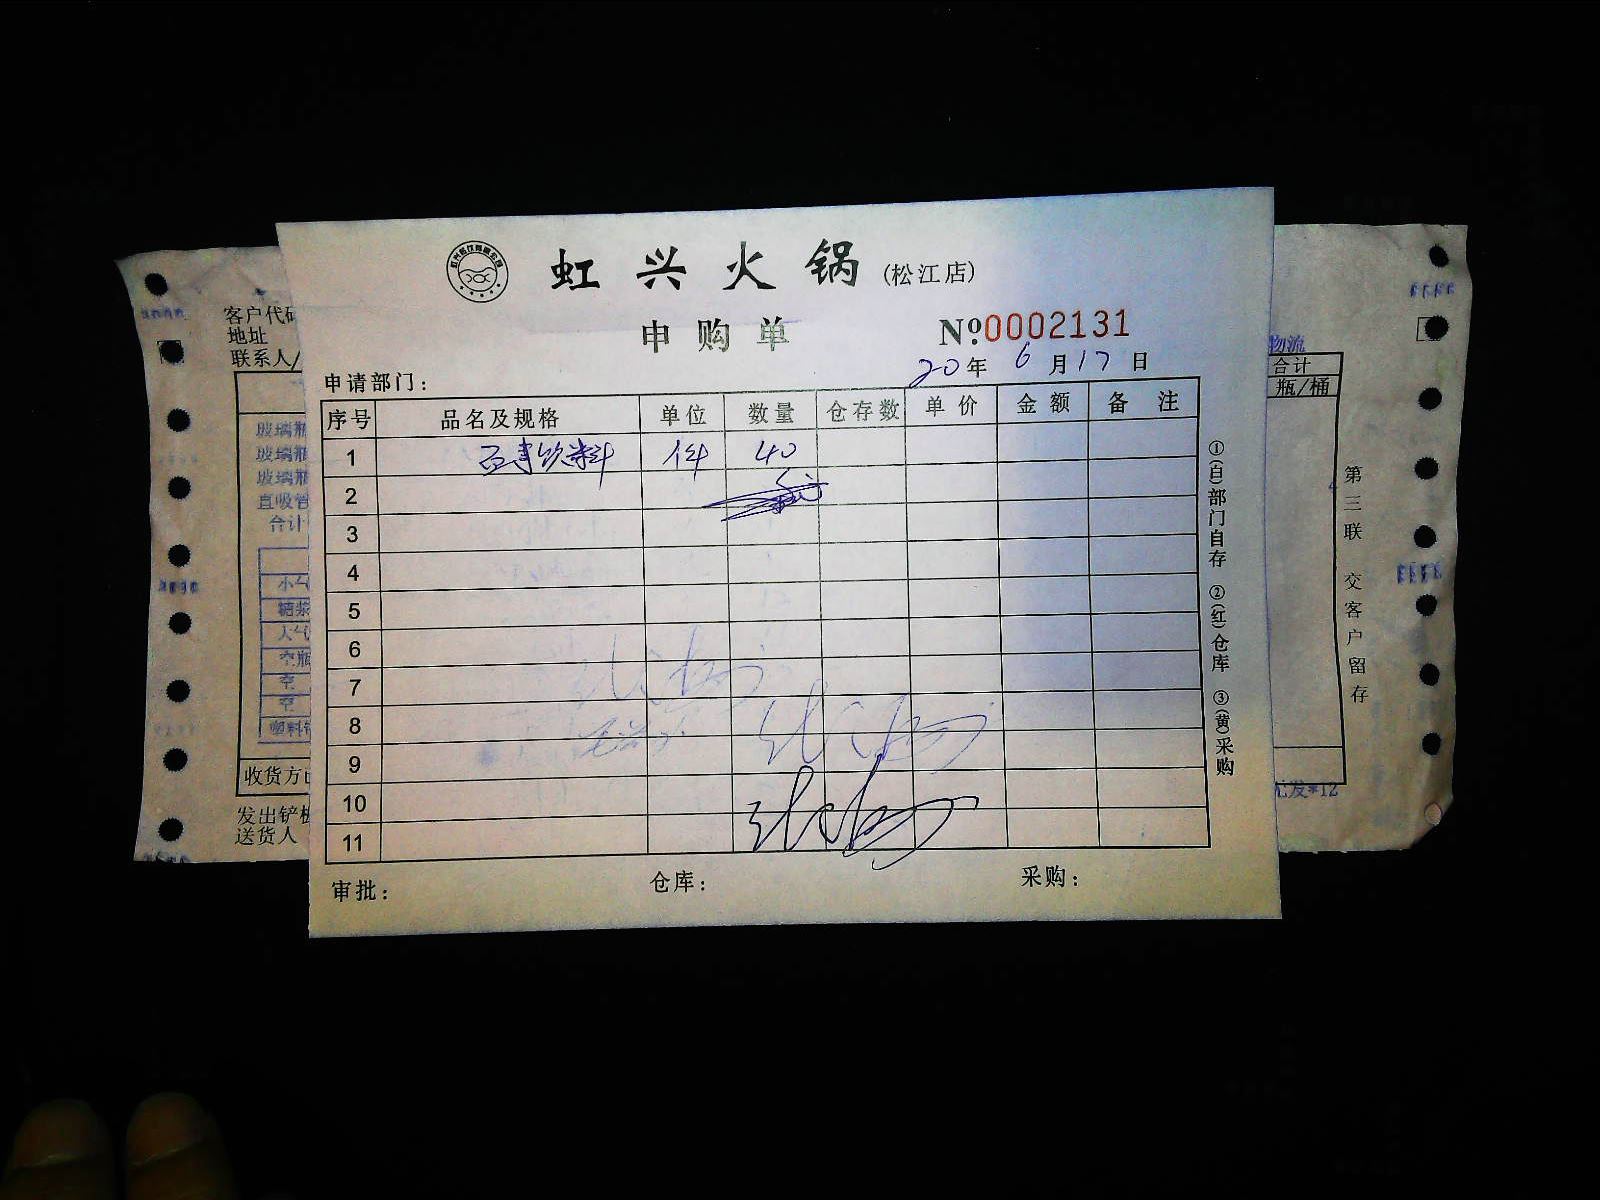 虹兴火锅(松江店)
申购单 №0002131
20年6月17日
申请部门：
序号 品名及规格 单位 数量 仓存数 单价 金额 备注
1 百事饮料 件 40
2
3
4
5
6
7
8
9
10
11
审批： 仓库： 采购：
①(白)部门自存 ②(红)仓库 ③(黄)采购
客户代码
地址
联系人/
玻璃瓶
玻璃瓶
玻璃瓶
直吸管
合计
糖浆
空瓶
空
空
塑料
收货方
发出铲板
送货人
物流
合计
瓶/桶
第三联 交客户留存
发*12